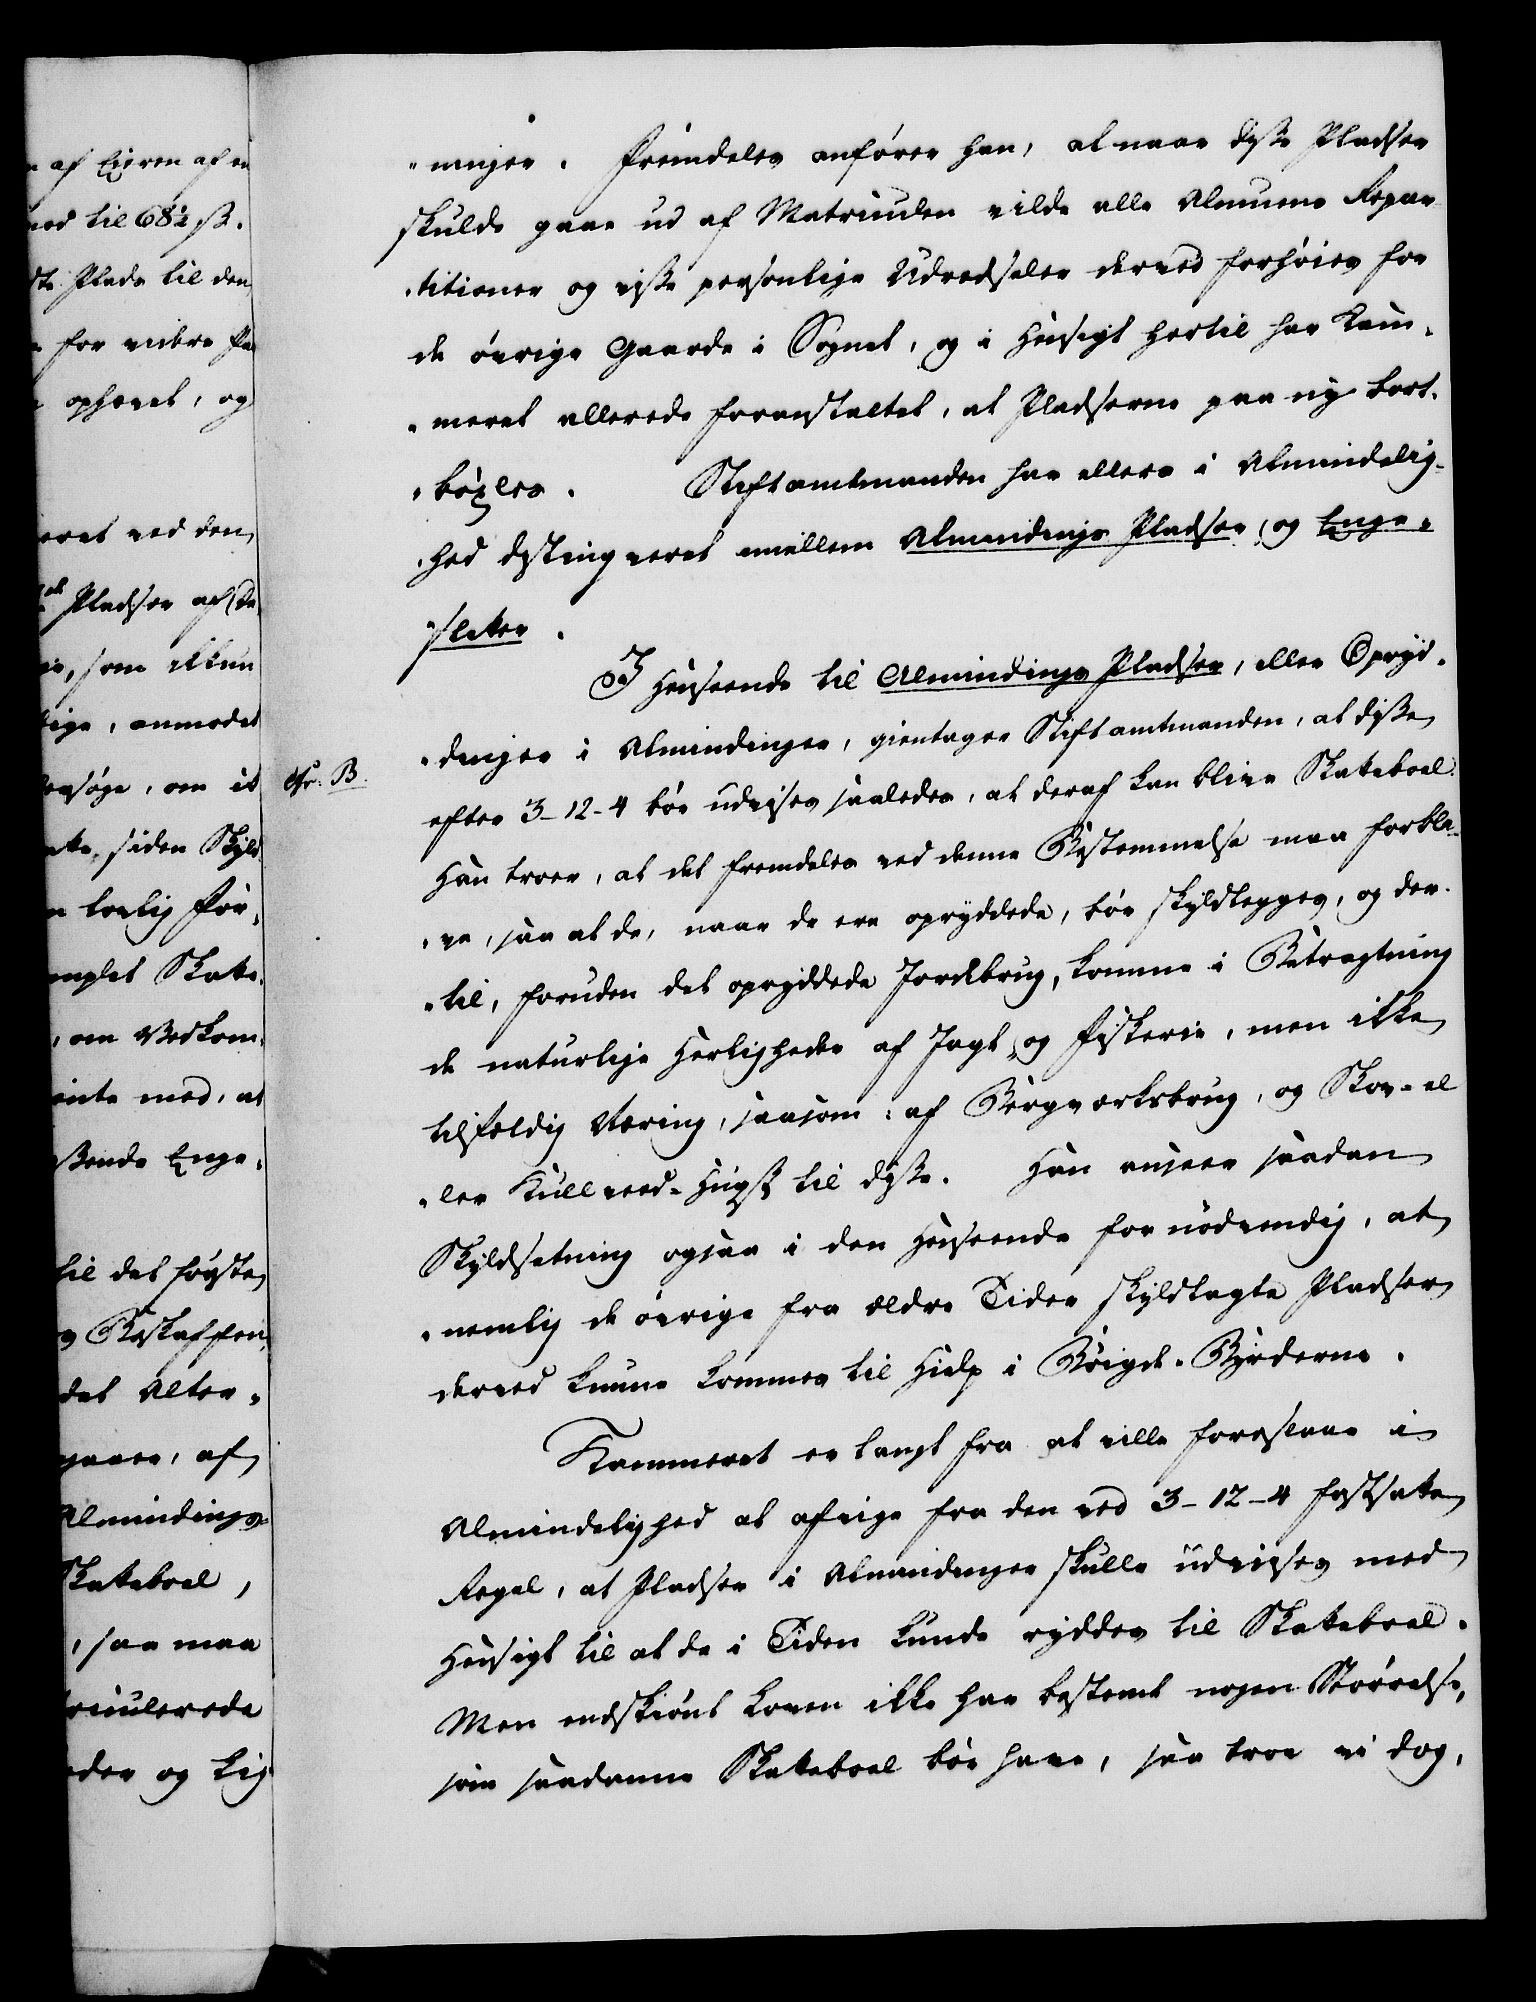 af Eieren af en
ned til 68½ ß.
Plads til den
for vidre
ophævet, og
ved den
Pladser af
som ikkun
anmodet
om it
siden Skyld
lovlig For¬
Skatte¬
om Vedkom¬
med, at
Enge¬
til det første
Beskaffen¬
det Alter¬
af
Almindings¬
Skatteboel,
saa maa
og Lig
"ninger. Fremdeles anfører han, at naar disse Pladser
skulde gaae ud af Matriculen vilde alle Almuens Repar¬
"titioner og visse personlige Udredseler derved forhøies for
de øvrige Gaarde i Sognet, og i Hensigt hertil har Kam¬
"meret allerede foranstaltet, at Pladserne paa ny bort¬
"bøxles. Stiftamtmanden har ellers i Almindelig¬
"hed distingveret imellem Almindings Pladser, og Enge¬
sletter.
I Henseende til Almindings Pladser, eller Opryd¬
"dninger i Almindinger, gientager Stiftamtmanden, at disse
Cfr. B.
efter 3-12-4 bør udvises saaledes, at deraf kan blive Skatteboel.
Han troer, at det fremdeles ved denne Bestemmelse maa forbli¬
"ve, saa at de, naar de ere opryddede, bør skyldlegges, og der¬
"til, foruden det opryddede Jordbrug, komme i Betragtning
de naturlige Herligheder af Jagt og Fiskerie, men ikke
tilfældig Næring, saasom: af Bergværksbrug, og Skov- el¬
"ler Kullved-Hugst til disse. Han anseer saadan
Skyldsætning ogsaa i den Henseende for nødvendig, at
"nemlig de øvrige fra ældre Tider skyldlagte Pladser
derved kunne kommes til Hielp i Bøigde-Byrderne.
Kammeret er langt fra at ville foreslaae i
Almindelighed at afvige fra den ved 3-12-4 fastsatte
Regel, at Pladser i Almindinger skulle udvises med
Hensigt til at de i Tiden kunde ryddes til Skatteboel.
Men endskiønt Loven ikke har bestemt nogen Størrelse,
som saadanne Skatteboel bør have, saa troe vi dog,